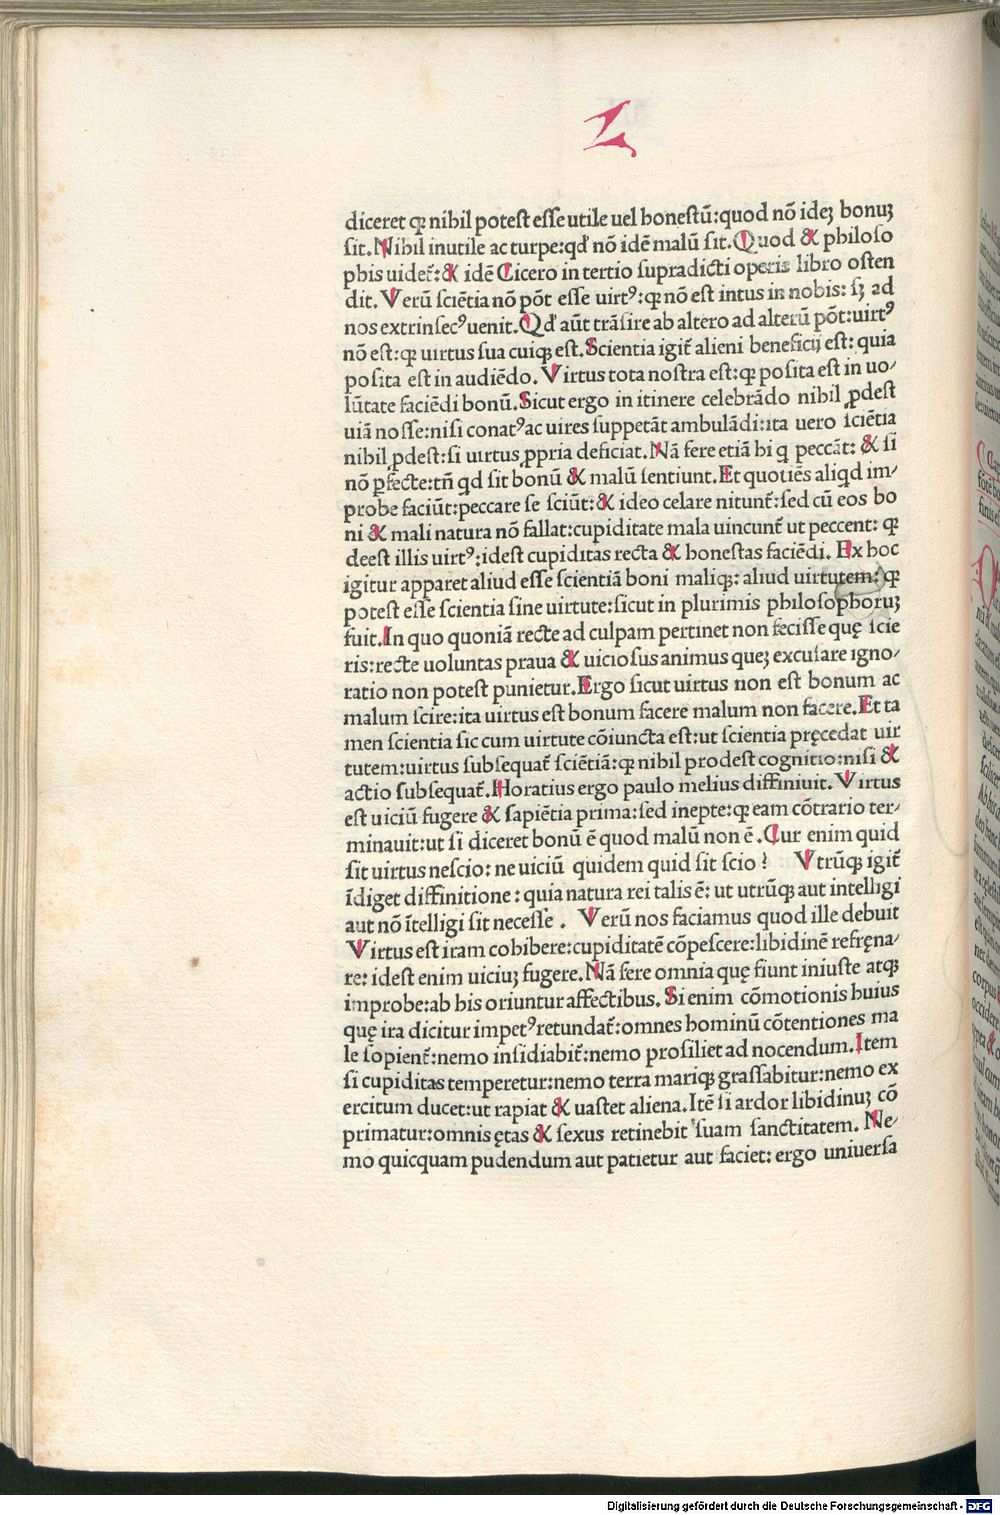 L
diceret qꝫ nihil potest esse utile uel honestū: quod nō ideꝫ bonuꝫ
sit. Nihil inutile ac turpe: qd' nō idē malū sit. Quod & philoso
phis uidet̃: & idē Cicero in tertio supradicti operis libro osten
dit. Verū sciētia nō pōt esse uirtꝰ: qꝫ nō est intus in nobis: sꝫ ad
nos extrinsecꝰ uenit. Qd' aūt trāsire ab altero ad alterū pōt: uirtꝰ
nō est: qꝫ uirtus sua cuiqꝫ est. Scientia igit̃ alieni beneficij est: quia
posita est in audiēdo. Virtus tota nostra est: qꝫ posita est in uo⸗
lūtate faciēdi bonū. Sicut ergo in itinere celebrādo nihil ꝓdest
uiā nosse: nisi conatꝰ ac uires suppetāt ambulādi: ita uero sciētia
nihil ꝓdest: si uirtus ꝓpria deficiat. Nā fere etiā hi q peccāt: & si
nō ꝑfecte: tñ qd sit bonū & malū sentiunt. Et quotiēs aliqd im⸗
probe faciūt: peccare se sciūt: & ideo celare nitunt̃: sed cū eos bo
ni & mali natura nō fallat: cupiditate mala uincunt̃ ut peccent: qꝫ
deest illis uirtꝰ: idest cupiditas recta & honestas faciēdi. Ex hoc
igitur apparet aliud esse scientiā boni maliqꝫ: aliud uirtutem: qꝫ
potest esse scientia sine uirtute: sicut in plurimis philosophoruꝫ
fuit. In quo quoniā recte ad culpam pertinet non fecisse quę scie
ris: recte uoluntas praua & uiciosus animus queꝫ excusare igno⸗
ratio non potest punietur. Ergo sicut uirtus non est bonum ac
malum scire: ita uirtus est bonum facere malum non facere. Et ta
men scientia sic cum uirtute cōiuncta est: ut scientia pręcedat uir
tutem: uirtus subsequat̃ sciētiā: qꝫ nihil prodest cognitio: nisi &
actio subsequat̃. Horatius ergo paulo melius diffiniuit. Virtus
est uiciū fugere & sapiētia prima: sed inepte: qꝫ eam cōtrario ter⸗
minauit: ut si diceret bonū ē quod malū non ē. Cur enim quid
sit uirtus nescio: ne uiciū quidem quid sit scio? Vtrūqꝫ igit̃
īdiget diffinitione: quia natura rei talis ē: ut utrūqꝫ aut intelligi
aut nō ītelligi sit necesse. Verū nos faciamus quod ille debuit
Virtus est iram cohibere: cupiditatē cōpescere: libidinē refręna⸗
re: idest enim uiciuꝫ fugere. Nā fere omnia quę fiunt iniuste atqꝫ
improbe: ab his oriuntur affectibus. Si enim cōmotionis huius
quę ira dicitur impetꝰ retundat̃: omnes hominū cōtentiones ma
le sopient̃: nemo insidiabit̃: nemo prosiliet ad nocendum. Item
si cupiditas temperetur: nemo terra mariqꝫ grassabitur: nemo ex
ercitum ducet: ut rapiat & uastet aliena. Itē si ardor libidinuꝫ cō
primatur: omnis ętas & sexus retinebit suam sanctitatem. Ne⸗
mo quicquam pudendum aut patietur aut faciet: ergo uniuersa
Digitalisierung gefördert durch die Deutsche Forschungsgemeinschaft - DFG